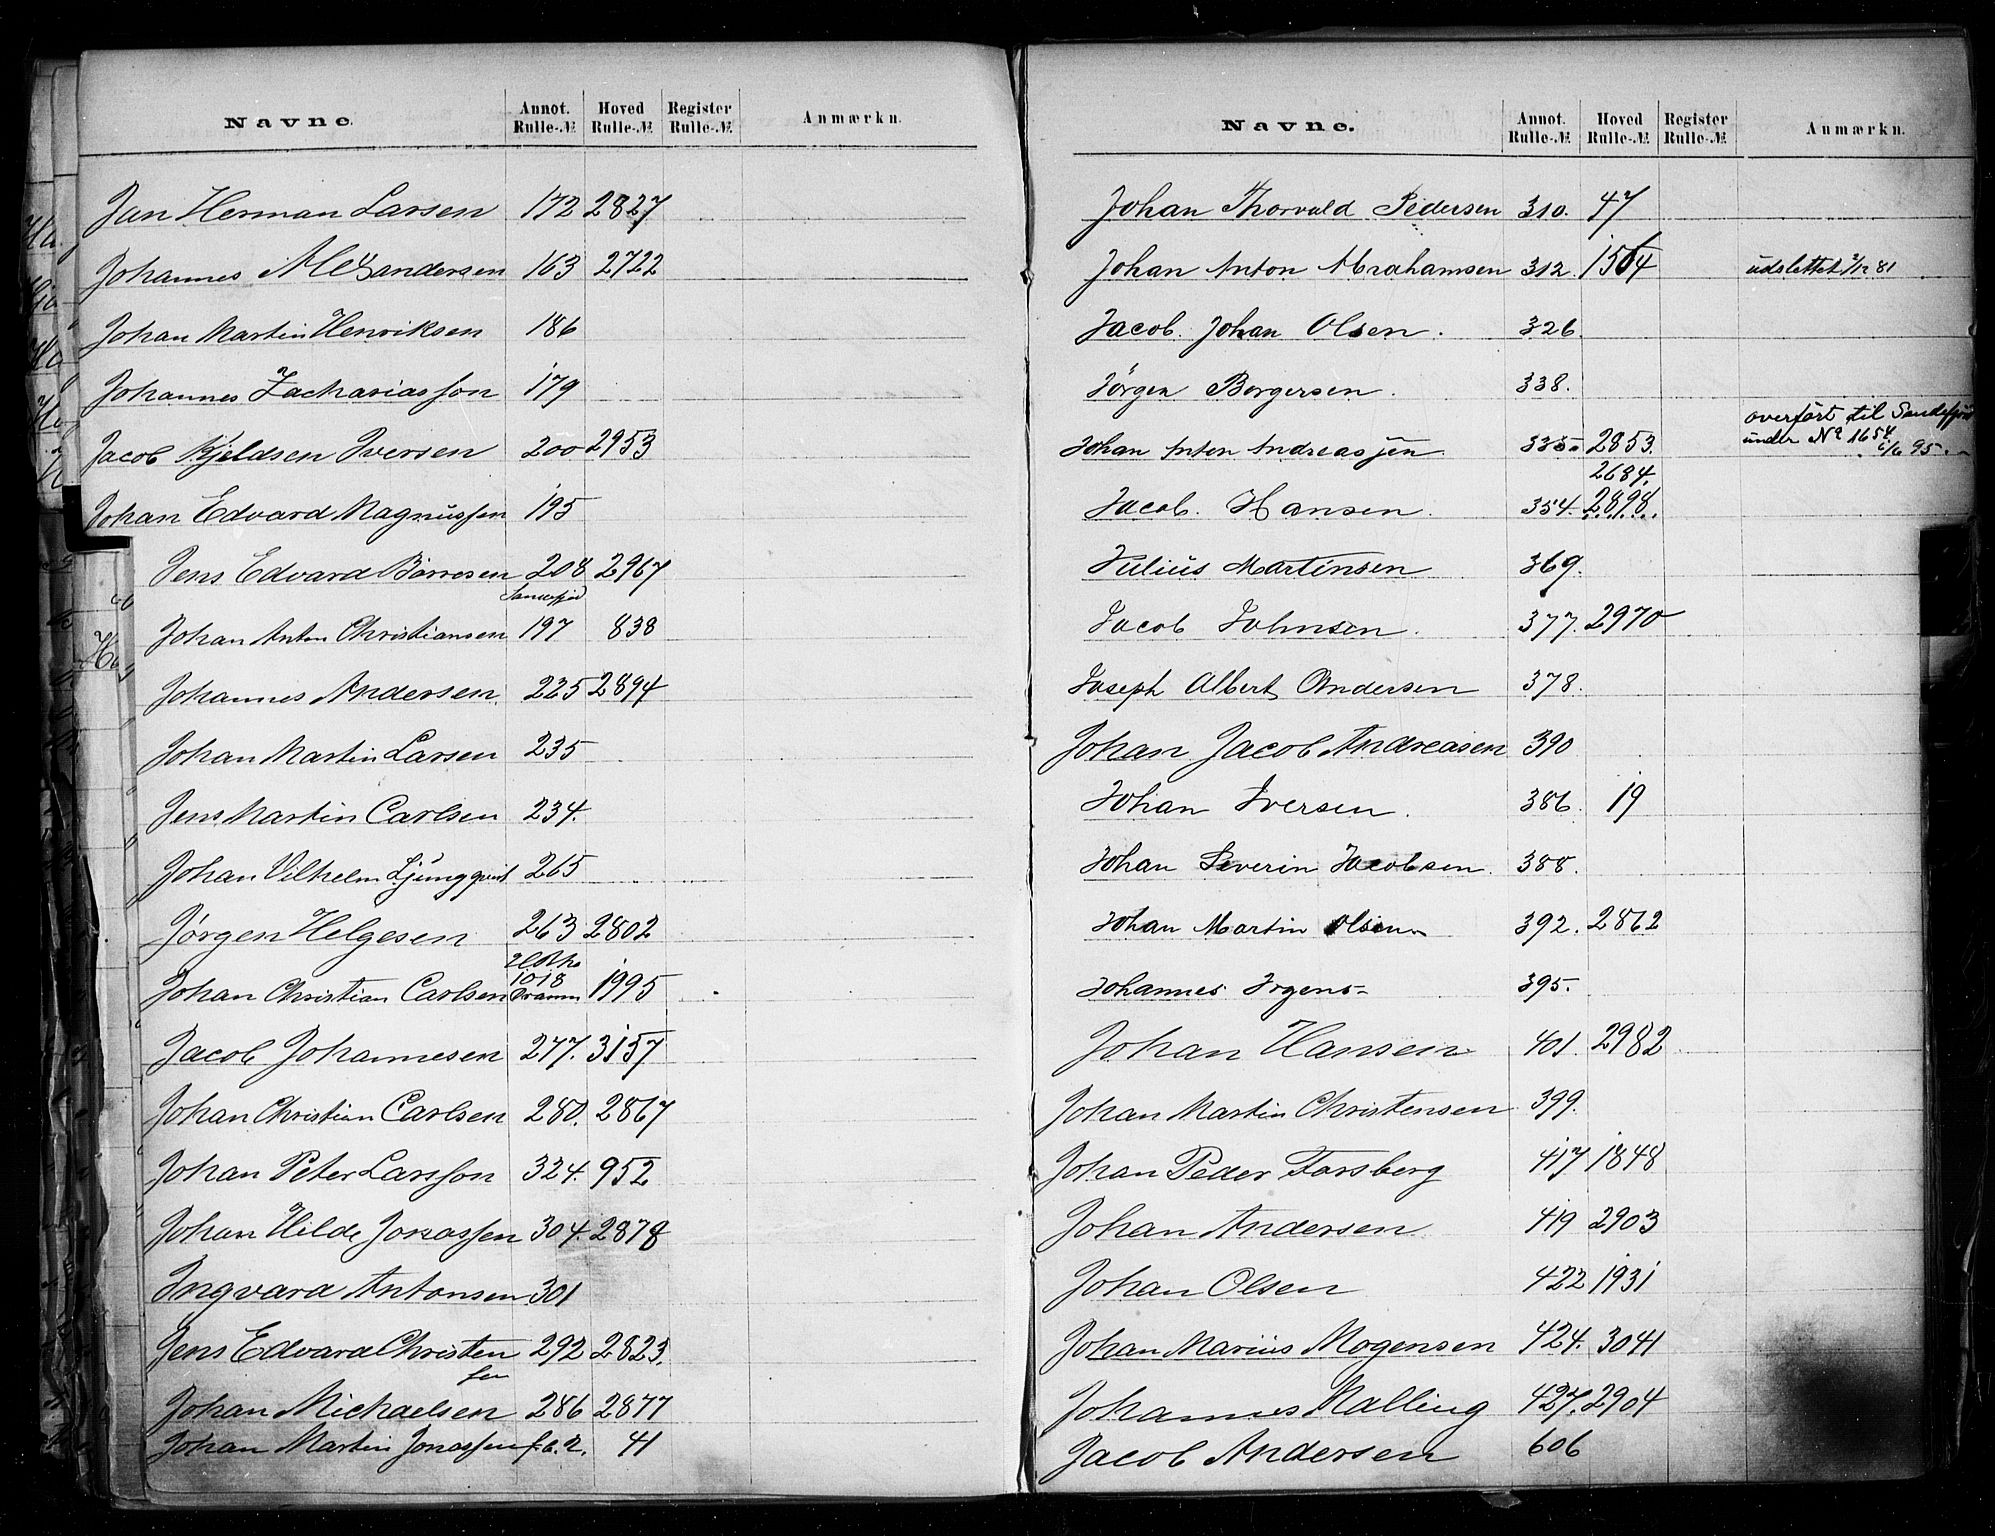 Navne. Annot. Rulle-№ Hoved Rulle-№ Register Rulle-№ Anmærkn.
Jan Herman Larsen 172 2827
Johannes Alexandersen 163 2722
Johan Martin Henriksen 186
Johannes Zachariasson 179
Jacob Kjeldsen Iversen 200 2953
Johan Edvard Magnussen 195
Jens Edvard Børresen 208 2967
Johan Anton Christiansen 197 838
Johannes Andersen 225 2894
Johan Martin Larsen 235
Jens Martin Carlsen 234.
Johan Vilhelm Ljungqvist 265
Jørgen Helgesen 263 2802
Johan Christian Carlsen 1018 Dramm 1995
Jacob Johannesen 277. 3157
Johan Christian Carlsen 280. 2867
Johan Peter Larsson 324. 952
Johan Hilde Jonassen 304. 2878
Ingvard Antonsen 301
Jens Edvard Christen 292 2823.
sen
Johan Michaelsen 286 2877
Johan Martin Jonassen 41
Navne. Annot. Rulle-№ Hoved Rulle-№ Register Rulle-№ Anmærkn.
Johan Thorvald Pedersen 310. 47
Johan Anton Abrahamsen 312. 1564 udslettet 2/12 81
Jacob. Johan Olsen. 326.
Jörgen Borgersen. 338.
overfört til Sandefjord
Johan Anton Andreassen 335. 2853. under No 1654
2684. 1/6 95.
Jacob. Hansen. 354. 2898.
Julius Martinsen 369.
Jacob Johnsen. 377. 2970
Joseph Albert Andersen 378.
Johan Jacob Andreasen 390
Johan Iversen. 386. 19
Johan Severin Jacobsen. 388.
Johan Martin Olsen 392. 2862
Johannes Irgens 395.
Johan Hansen 401. 2982
Johan Martin Christensen 399.
Johan Peder Forsberg 417 1848
Johan Andersen 419 2903
Johan Olsen 422 1931
Johan Marius Mogensen 424. 3041
Johannes Malling 427. 2904
Jacob Andersen 606